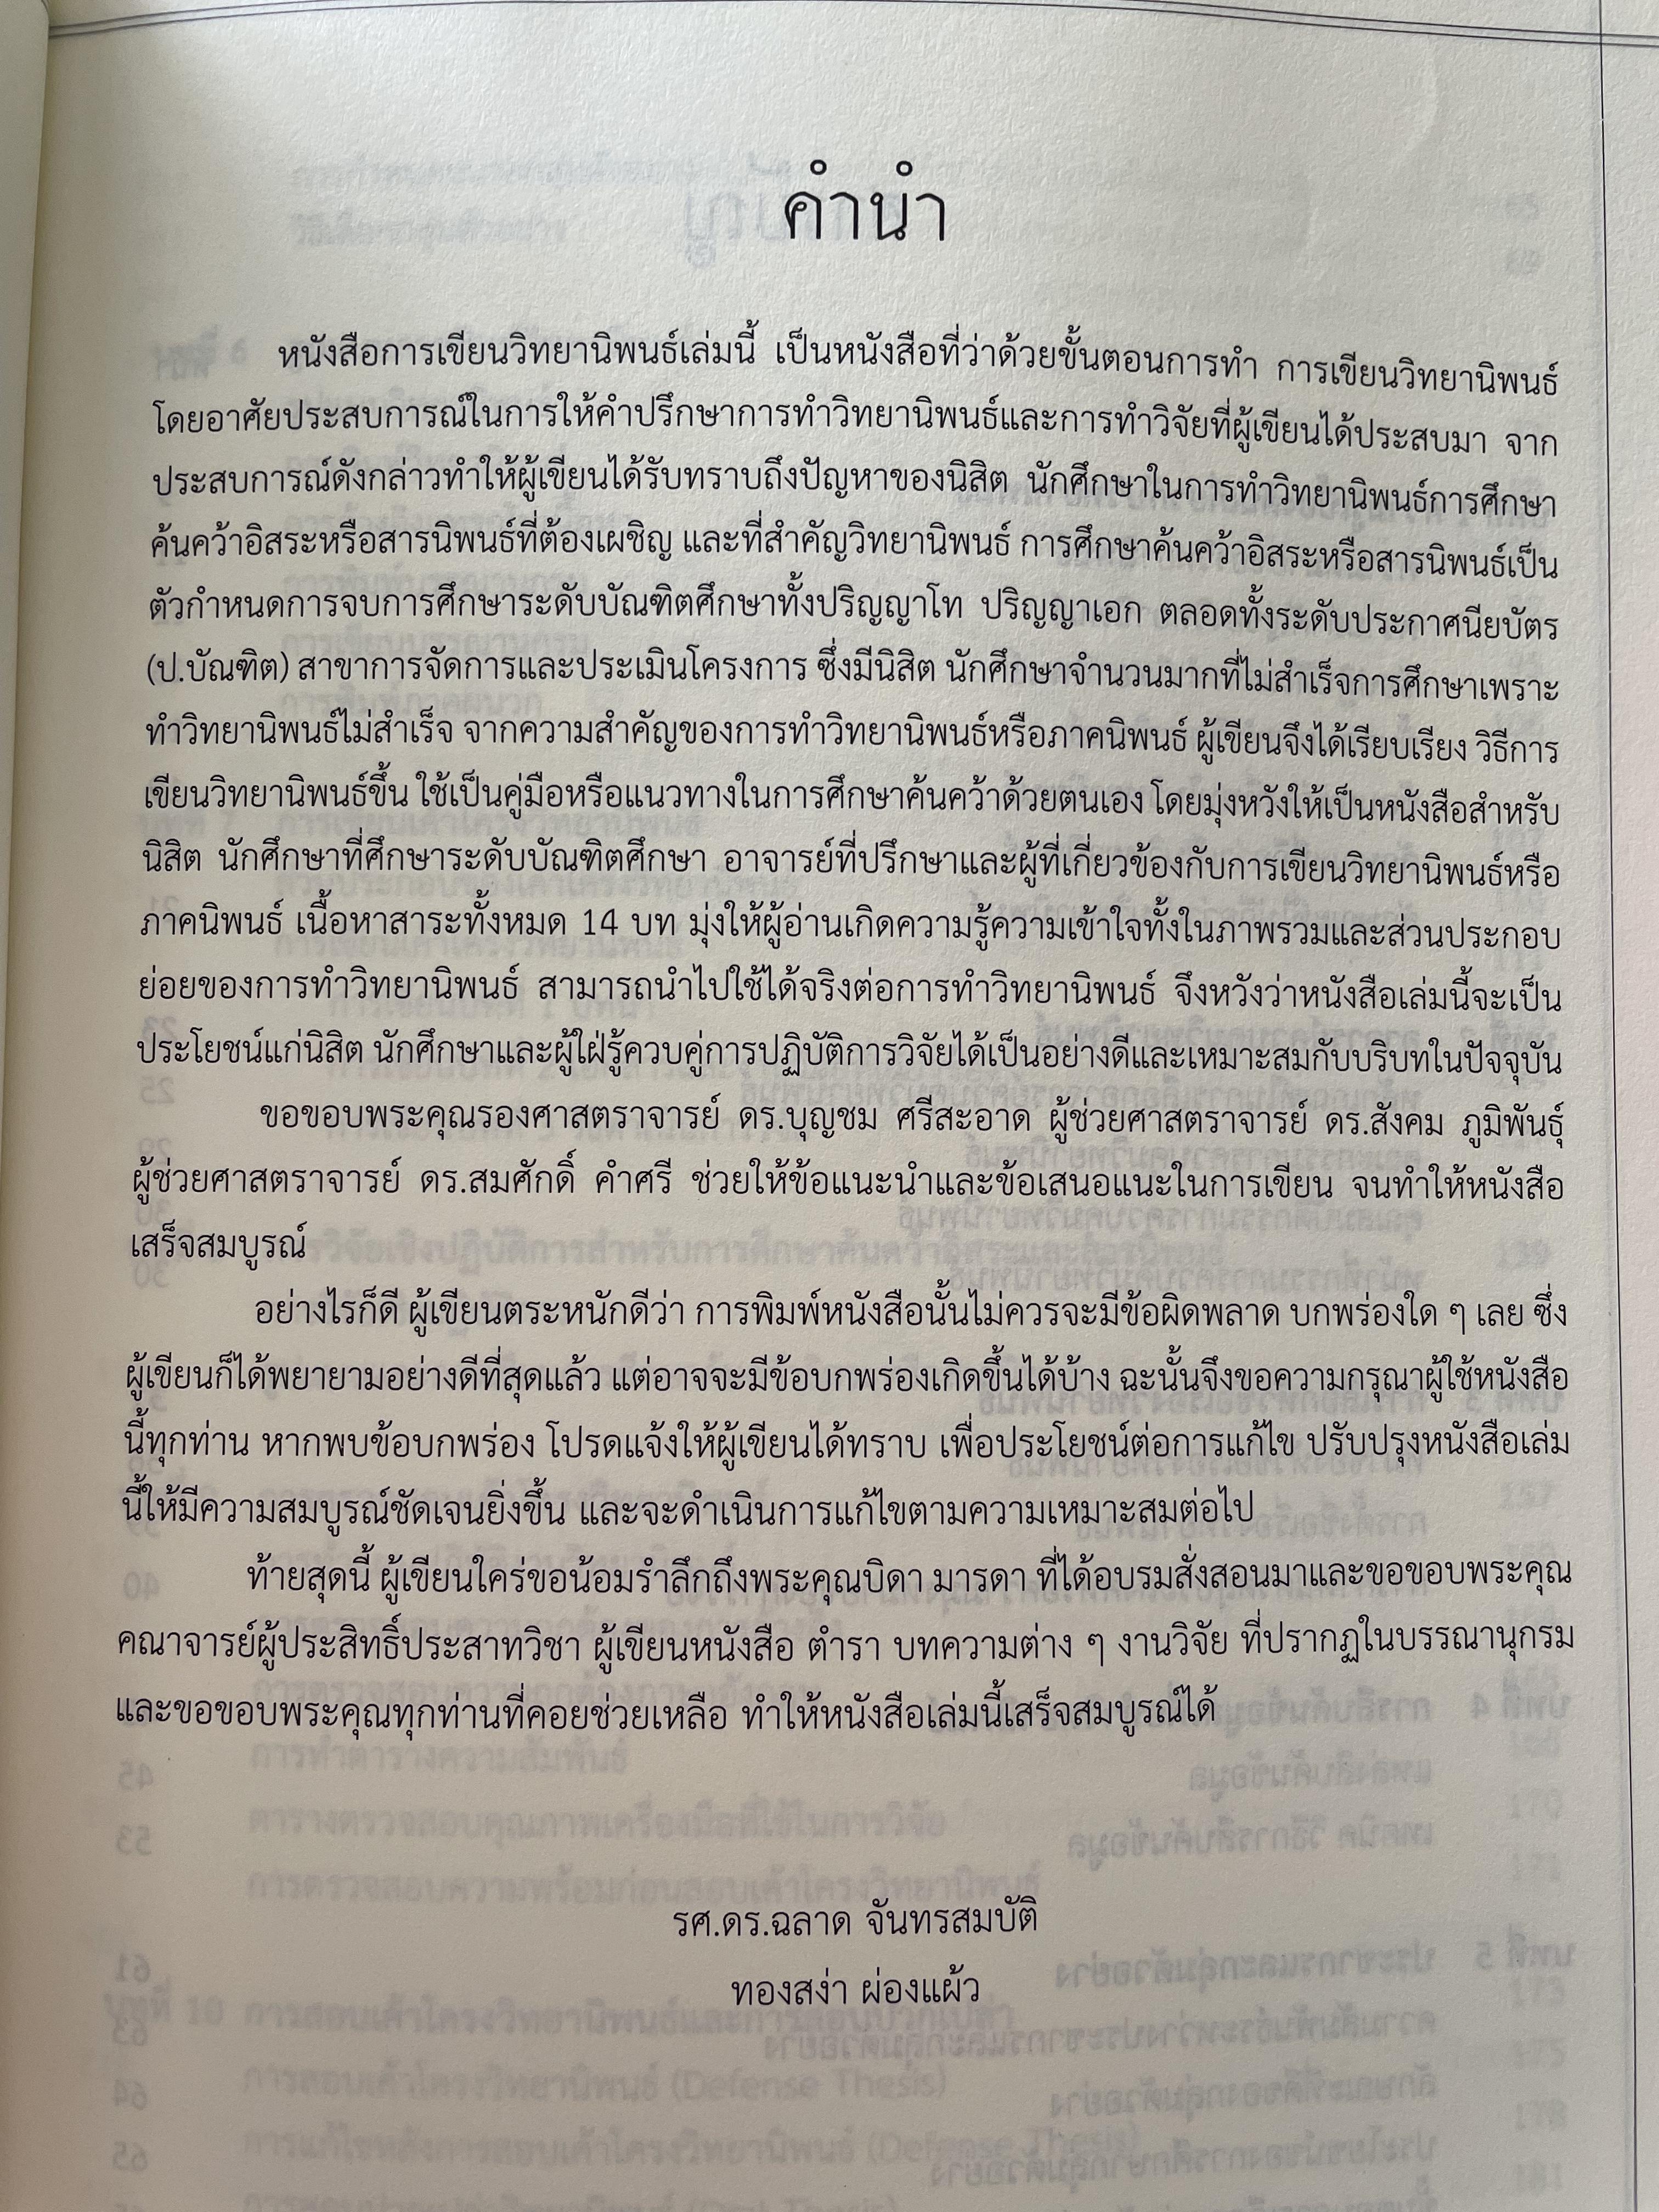 คำนำ
หนังสือการเขียนวิทยานิพนธ์เล่มนี้ เป็นหนังสือที่ว่าด้วยขั้นตอนการทำ การเขียนวิทยานิพนธ์
โดยอาศัยประสบการณ์ในการให้คำปรึกษาการทำวิทยานิพนธ์และการทำวิจัยที่ผู้เขียนได้ประสบมา จาก
ประสบการณ์ดังกล่าวทำให้ผู้เขียนได้รับทราบถึงปัญหาของนิสิต นักศึกษาในการทำวิทยานิพนธ์การศึกษา
ค้นคว้าอิสระหรือสารนิพนธ์ที่ต้องเผชิญ และที่สำคัญวิทยานิพนธ์ การศึกษาค้นคว้าอิสระหรือสารนิพนธ์เป็น
ตัวกำหนดการจบการศึกษาระดับบัณฑิตศึกษาทั้งปริญญาโท ปริญญาเอก ตลอดทั้งระดับประกาศนียบัตร
(ป.บัณฑิต) สาขาการจัดการและประเมินโครงการ ซึ่งมีนิสิต นักศึกษาจำนวนมากที่ไม่สำเร็จการศึกษาเพราะ
ทำวิทยานิพนธ์ไม่สำเร็จ จากความสำคัญของการทำวิทยานิพนธ์หรือภาคนิพนธ์ ผู้เขียนจึงได้เรียบเรียง วิธีการ
เขียนวิทยานิพนธ์ขึ้น ใช้เป็นคู่มือหรือแนวทางในการศึกษาค้นคว้าด้วยตนเอง โดยมุ่งหวังให้เป็นหนังสือสำหรับ
นิสิต นักศึกษาที่ศึกษาระดับบัณฑิตศึกษา อาจารย์ที่ปรึกษาและผู้ที่เกี่ยวข้องกับการเขียนวิทยานิพนธ์หรือ
ภาคนิพนธ์ เนื้อหาสาระทั้งหมด 14 บท มุ่งให้ผู้อ่านเกิดความรู้ความเข้าใจทั้งในภาพรวมและส่วนประกอบ
ย่อยของการทำวิทยานิพนธ์ สามารถนำไปใช้ได้จริงต่อการทำวิทยานิพนธ์ จึงหวังว่าหนังสือเล่มนี้จะเป็น
ประโยชน์แก่นิสิต นักศึกษาและผู้ใฝ่รู้ควบคู่การปฏิบัติการวิจัยได้เป็นอย่างดีและเหมาะสมกับบริบทในปัจจุบัน
ขอขอบพระคุณรองศาสตราจารย์ ดร.บุญชม ศรีสะอาด ผู้ช่วยศาสตราจารย์ ดร.สังคม ภูมิพันธุ์
ผู้ช่วยศาสตราจารย์ ดร.สมศักดิ์ คำศรี ช่วยให้ข้อแนะนำและข้อเสนอแนะในการเขียน จนทำให้หนังสือ
เสร็จสมบูรณ์
อย่างไรก็ดี ผู้เขียนตระหนักดีว่า การพิมพ์หนังสือนั้นไม่ควรจะมีข้อผิดพลาด บกพร่องใด ๆ เลย ซึ่ง
ผู้เขียนก็ได้พยายามอย่างดีที่สุดแล้ว แต่อาจจะมีข้อบกพร่องเกิดขึ้นได้บ้าง ฉะนั้นจึงขอความกรุณาผู้ใช้หนังสือ
นี้ทุกท่าน หากพบข้อบกพร่อง โปรดแจ้งให้ผู้เขียนได้ทราบ เพื่อประโยชน์ต่อการแก้ไข ปรับปรุงหนังสือเล่ม
นี้ให้มีความสมบูรณ์ชัดเจนยิ่งขึ้น และจะดำเนินการแก้ไขตามความเหมาะสมต่อไป
ท้ายสุดนี้ ผู้เขียนใคร่ขอน้อมรำลึกถึงพระคุณบิดา มารดา ที่ได้อบรมสั่งสอนมาและขอขอบพระคุณ
คณาจารย์ผู้ประสิทธิ์ประสาทวิชา ผู้เขียนหนังสือ ตำรา บทความต่าง ๆ งานวิจัย ที่ปรากฏในบรรณานุกรม
และขอขอบพระคุณทุกท่านที่คอยช่วยเหลือ ทำให้หนังสือเล่มนี้เสร็จสมบูรณ์ได้
รศ.ดร.ฉลาด จันทรสมบัติ
ทองสง่า ผ่องแผ้ว